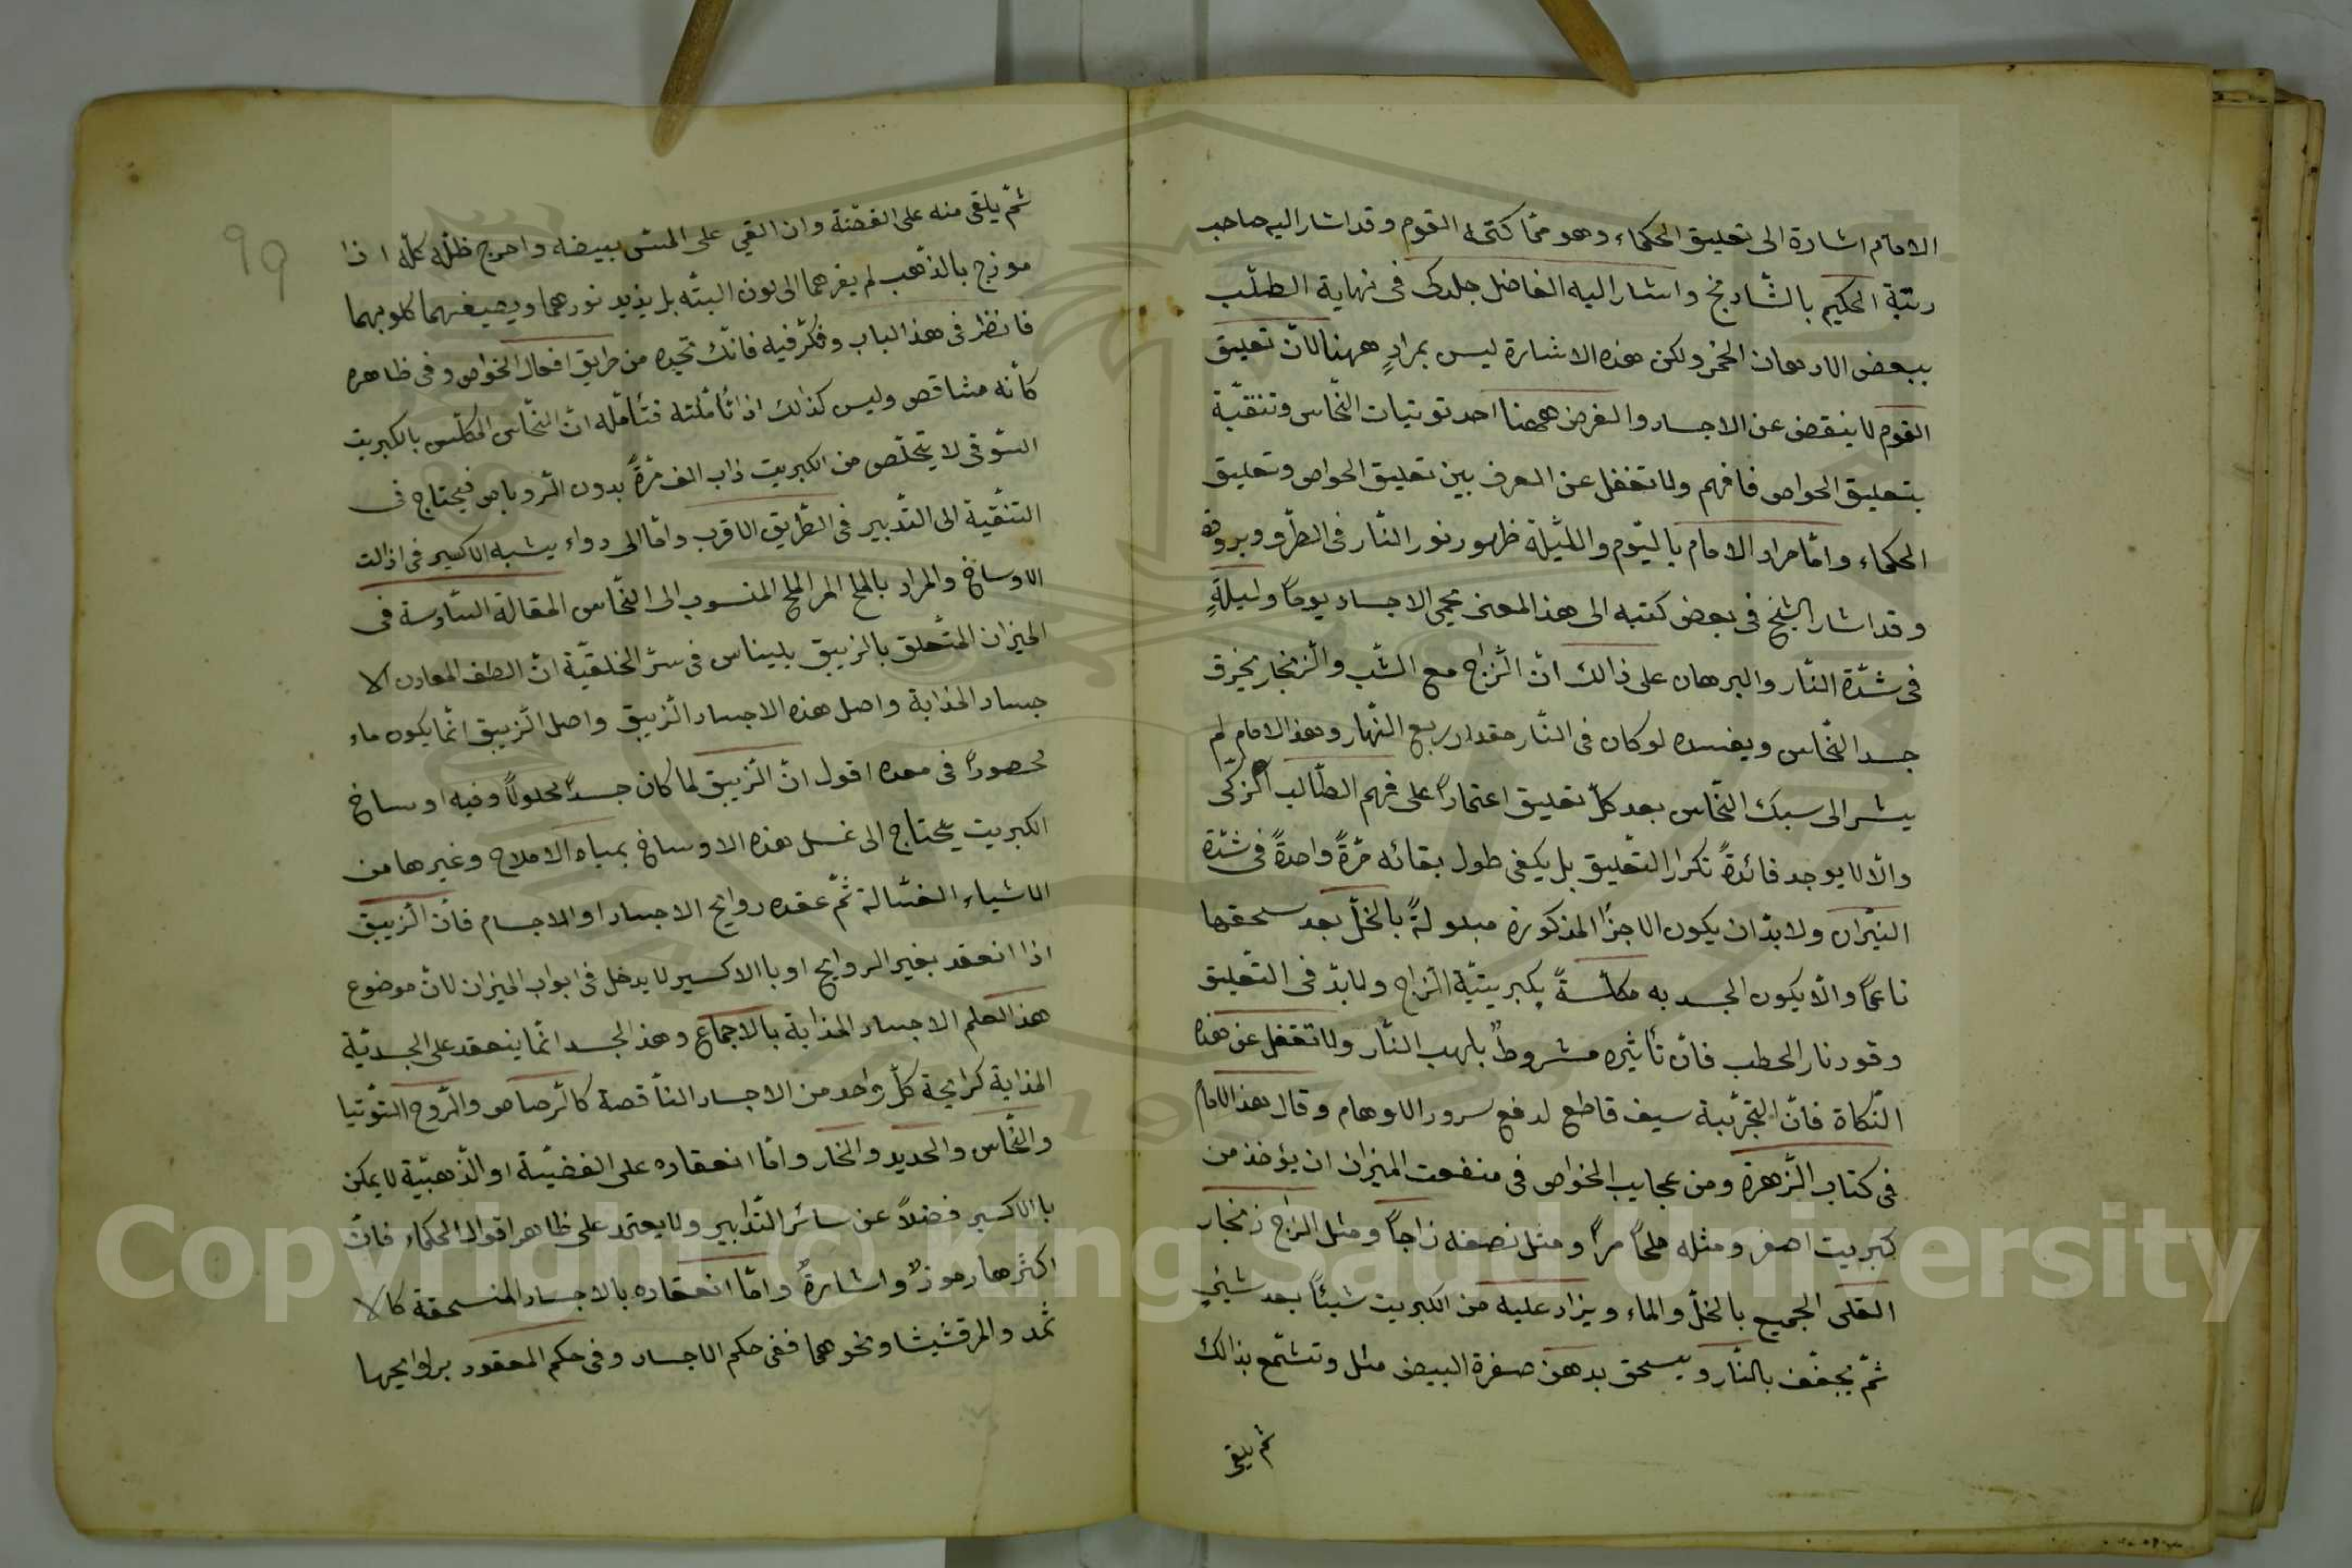 الامام اشارة الى تعليق الحكماء وهو ممّا كتمه القوم وقد اشار اليه صاحب
رتبة الحكيم بالشّادنج واشار اليه الفاضل جلدكى فى نهاية الطلب
ببعض الادهان الحمر ولكن هذه الاشارة ليس بمرادٍ ههنا لانّ تعليق
القوم لا ينقض عن الاجساد والغرض ههنا احد توتيات النّحاس وتنقيّة
بتعليق الخواص فافهم ولا تغفل عن الفرق بين تعليق الخواص وتعليق
الحكماء وامّا مراد الامام باليّوم واللّيلة ظهور نور النّار فى الطّرو وبروقه
وقد اشار الشيخ فى بعض كتبه الى هذا المعنى يحمى الاجساد يوماً وليلةٍ
فى شدّة النّار والبرهان على ذالك انّ الزّاج مع الشّب والزّنجار يخرق
جسد النّحاس ويفسده لو كان فى النّار مقدار ربع النّهار وهذا الامام لم
يشر الى سبك النّحاس بعد كلّ تعليق اعتماداً على فهم الطّالب الزّكى
والّا لا يوجد فائدةً تكرار التّعليق بل يكفى طول بقائه مرّةً واحدةً فى شدّة
النيّران ولا بدّ ان يكون الاجزا المذكورة مبلولةً بالخلّ بعد سحقها
ناعماً والّا يكون الجسد به مكلّسةً بكبريتيّة الزّاج ولا بدّ فى التّعليق
وقود نار الحطب فانّ تأثيره مشروطٌ بلهب النّار ولا تغفل عن هذه
النّكاة فانّ التّجرّبية سيف قاطع لدفع سرور الاوهام وقال هذا الامام
فى كتاب الزّهرة ومن عجايب الخواص فى منفعت الميزان ان يؤخذ من
كبريت اصفر ومثله ملحاً مراً ومثل نصفه زاجاً ومثل الزاج زنجار
القلى الجميع بالخلّ والماء ويزاد عليه من الكبريت شيئاً بعد شيئٍ
ثمّ يجفّف بالنّار ويسحق بدهن صفرة البيض مثل وتشمّع بذالك
ثم يلقى
99
ثمّ يلقى منه على الفضّة وان القي على المسّ بيضه واخرج ظلّه كلّه اذا
موزج بالذّهب لم يغرهما الى لون البتّه بل يزيد نورهما ويصيغهما كلوبهما
فانظر فى هذا الباب وفكّر فيه فانّك تجده من طريق افعال الخواص وفى ظاهره
كأنه متناقص وليس كذلك اذا تأمّلته فتأمّله انّ النّحاس المكلّس بالكبريت
السّوقى لا يتخلّص من الكبريت ذاب الف مرّةً بدون الرّوباص فيحتاج فى
التنقيّة الى التّدبير فى الطّريق الاقرب وامّا الى دواء يشبه الاكسير فى اذالت
الاوساخ والمراد بالملح المر الملح المنسوب الى النّحاس المقالة السّادسة فى
الميزان المتعلق بالزيبق بليناس فى سرّ الخلقيّة انّ الطف المعادن الا
جساد المذابة واصل هذه الاجساد الزّيبق واصل الزّيبق انّما يكون ماء
محصوراً فى معده اقول انّ الزّيبق لما كان جسداً محلولاً وفيه اوساخ
الكبريت يحتاج الى غسل هذه الاوساخ بمياه الاملاح وغيرها من
الاشياء الغسّالة ثمّ عقده روايح الاجساد او الاجسام فانّ الزّيبق
اذا انعقد بغير الروايح او بالاكسير لا يدخل فى ابواب الميزان لانّ موضوع
هذا العلم الاجساد المذابة بالاجماع وهذا الجسد انّما ينعقد على الجسديّة
المذابة كرايحة كلّ واحد من الاجساد النّاقصة كالرّصاص والرّوح التوّتيا
والنّحاس والحديد والخار وامّا انعقاده على الفضيّة او الذّهبيّة لا يمكن
بالاكسير فضلاً عن سائر التّدابير ولا يعتمد على ظاهر اقوال الحكماء فانّ
اكثرها رموزٌ واشارةٌ وامّا انعقاده بالاجساد المنسحقة كالا
ثمد والمرقشيشا ونحوهما ففى حكم الاجساد وفى حكم المعقود بروايحها
Copyright © King Saud University